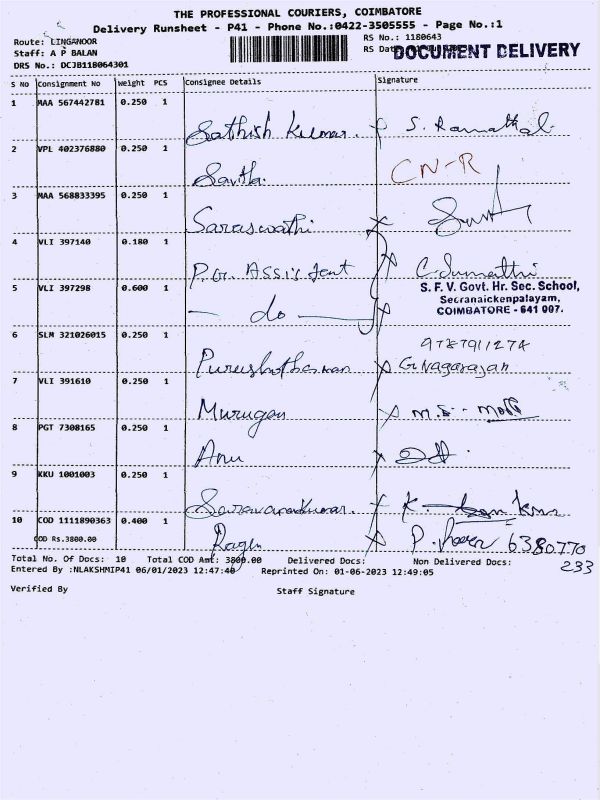 THE PROFESSIONAL COURIERS, COIMBATORE
Delivery Runsheet - P41 - Phone No.:0422-3505555 - Page No.:1
Route: LINGANOOR
RS No.: 1180643
Staff: A P BALAN
RS Dat
DOCUMENT DELIVERY
DRS No.: DCJB118064301
S No Consignment No Weight PCS Consignee Details Signature
1 MAA 567442781 0.250 1
Sathish Kumar. S. Ramathal
2 VPL 402376880 0.250 1
Savitha CN-R
3 MAA 568833395 0.250 1
Saraswathi
4 VLI 397140 0.180 1
P.G. Assistent C. Sumathi
5 VLI 397298 0.600 1
S. F. V. Govt. Hr. Sec. School,
Secranaickenpalayam,
COIMBATORE - 641 007.
- do -
6 SLM 321026015 0.250 1
9787911274
Purushothaman G. Nagarajan
7 VLI 391610 0.250 1
Murugan M.S.
8 PGT 7308165 0.250 1
Anu
9 KKU 1001003 0.250 1
Saravanakumar. K
10 COD 1111890363 0.400 1
COD Rs.3800.00
Ragu P. 6380770
233
Total No. Of Docs: 10 Total COD Amt: 3800.00 Delivered Docs: Non Delivered Docs:
Entered By :NLAKSHMIP41 06/01/2023 12:47:40 Reprinted On: 01-06-2023 12:49:05
Verified By Staff Signature